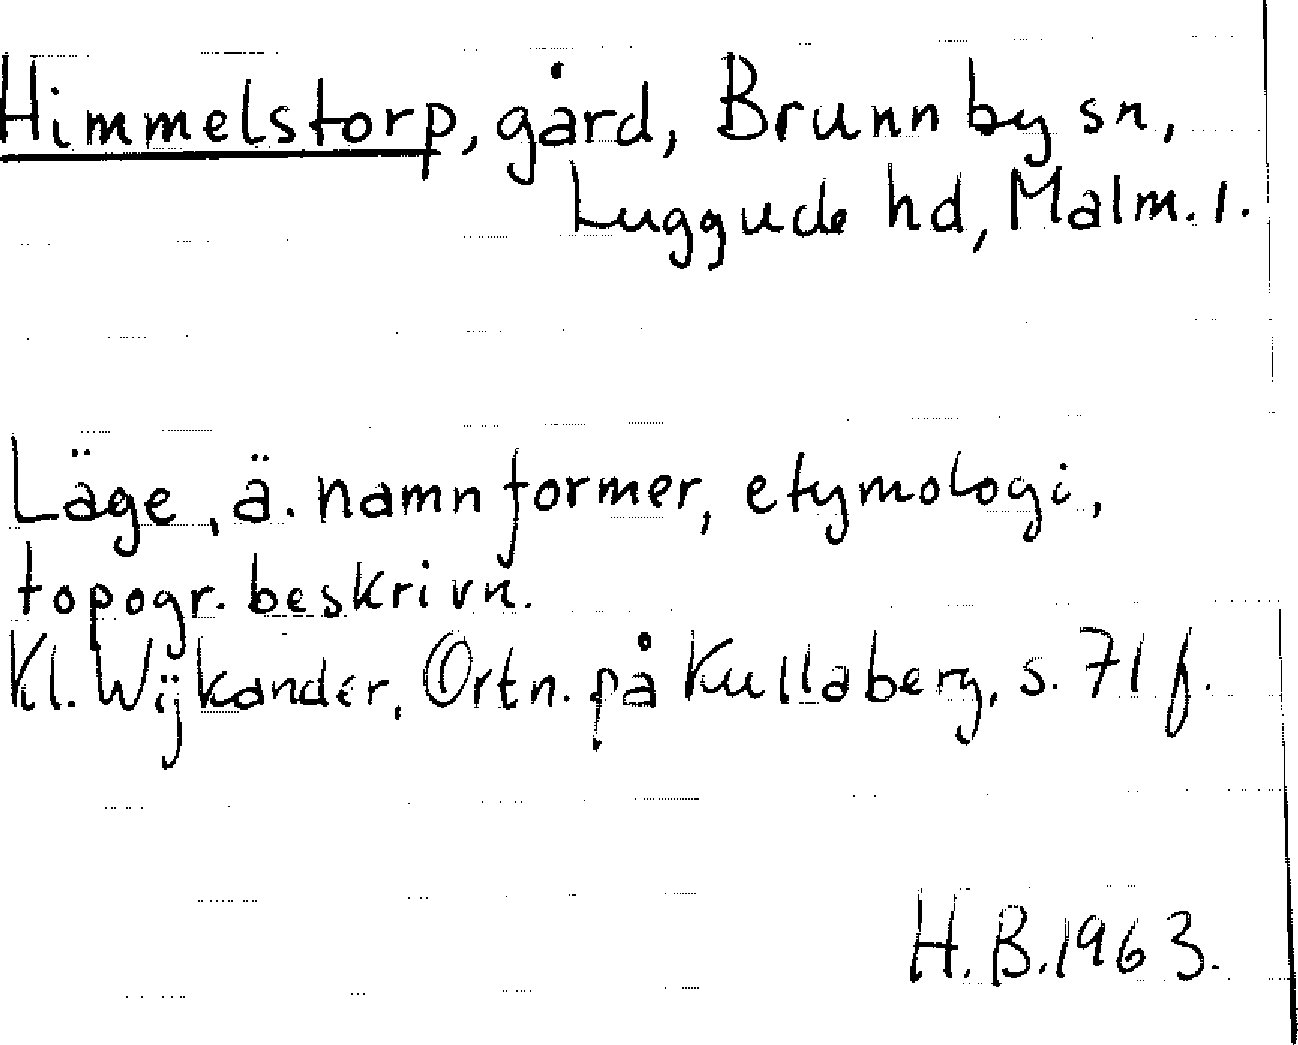 Himmelstorp, gård, Brunnby sn,
Luggude hd, Malm. l.
Läge, ä. namnformer, etymologi,
topogr. beskrivn.
Kl. Wijkander, Ortn. på Kullaberg, s. 71 f.
H. B. 1963.